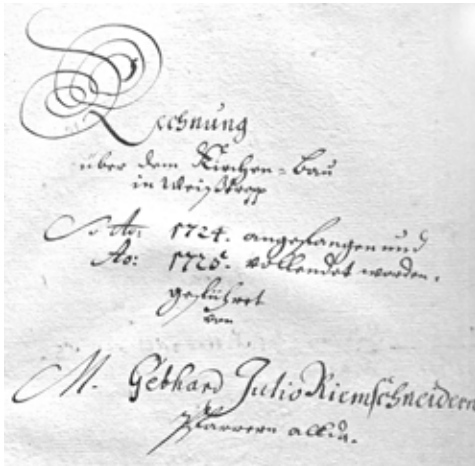 Rechnung
über dem Kirchen-Bau
in Weißtropp
So Ao: 1724. angefangen und
Ao: 1725. vollendet worden,
geführet
von
M. Gebhard Julio Riemschneidern
Pfarrern allda.